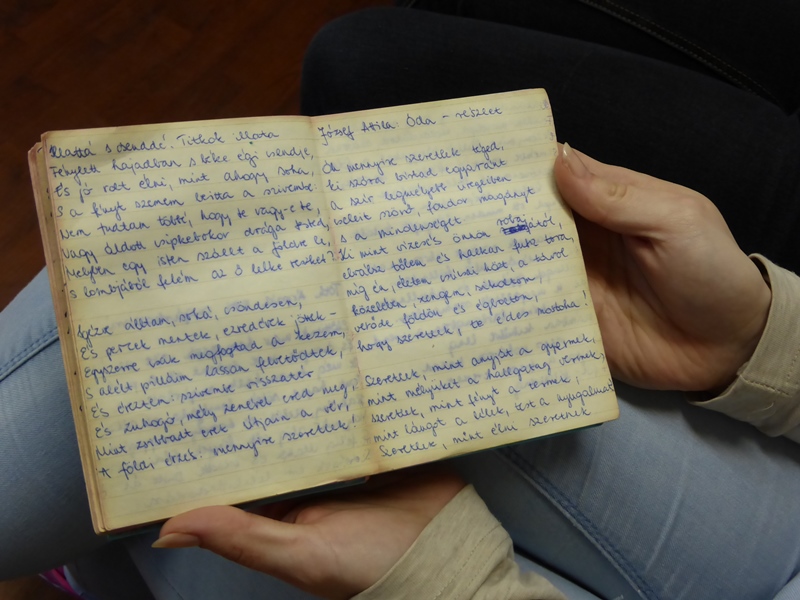 Illattá s csenddé. Titkok illata
Fénylett hajadban s béke égi csendje,
És jó volt élni, mint ahogy soha,
S a fényt szemem beitta a szivembe:
Nem tudtam többé, hogy te vagy-e te,
Vagy áldott csipkebokor drága tested,
Melyben egy isten szállt a földre le
S lombjából felém az ő lelke reszket?
Igézve álltam, soká, csöndesen,
És percek mentek, ezredévek jöttek -
Egyszerre csak megfogtad a kezem,
S alélt pilláim lassan felvetődtek,
És éreztem: szivembe visszatér
És zuhogó, mély zenével ered meg,
Mint zsibbadt erek útjain a vér,
A földi érzés: mennyire szeretlek!
József Atila: Óda - részlet
Óh mennyire szeretlek téged,
ki szóra bírtad egyaránt
a szív legmélyebb üregeiben
cseleit szövő, fondor magányt
s a mindenséget.
Ki mint vízesés önnön robajától,
elválsz tőlem és halkan futsz tova,
míg én, életem csúcsai közt, a távol
közelében, zengem, sikoltom,
verődve földön és égbolton,
hogy szeretlek, te édes mostoha!
Szeretlek, mint anyját a gyermek,
mint mélyüket a hallgatag vermek,
szeretlek, mint fényt a termek,
mint lángot a lélek, test a nyugalmat!
Szeretlek, mint élni szeretnek